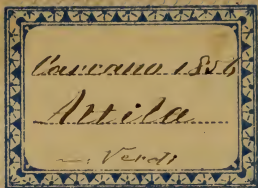 Carcano 1856
Attila
Verdi